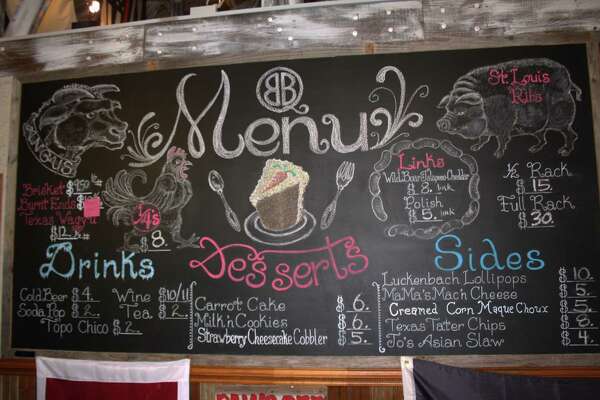 BB
Menu
ANGUS
Brisket $9.50
Burnt Ends $
Texas Wagyu
$12.
1/4's
$8.
Links
Wild Boar Jalapeno Cheddar
$8. link
Polish
$5. link
St. Louis
Ribs
1/2 Rack
$15.
Full Rack
$30.
Drinks
Cold Beer $4. Wine $10/11
Soda Pop $2. Tea $2.
Topo Chico $2.
Desserts
Carrot Cake $6.
Milk n Cookies $6.
Strawberry Cheesecake Cobbler $5.
Sides
Luckenbach Lollipops $10.
MaMa's Mach Cheese $5.
Creamed Corn Maque Choux $5.
Texas Tatter Chips $8.
Jo's Asian Slaw $4.